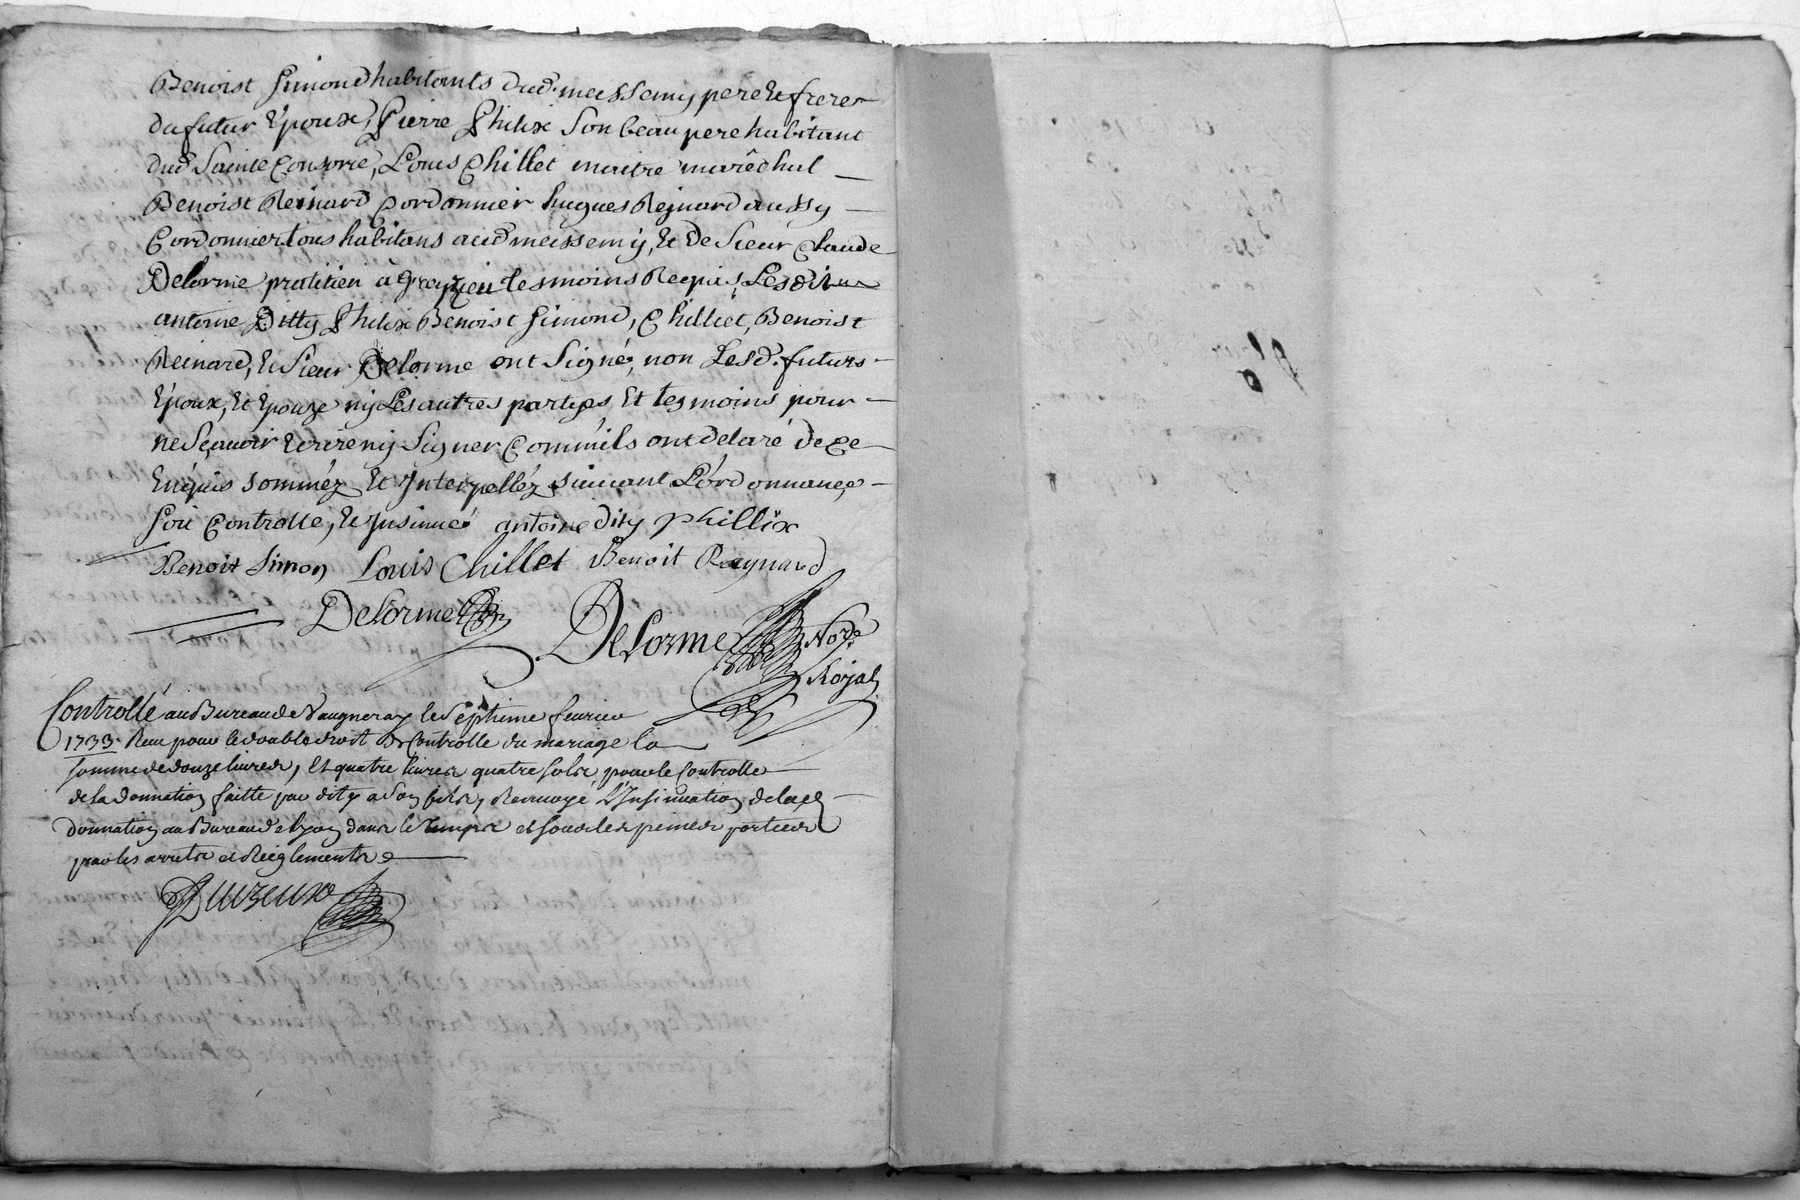 Benoist Simond habitants dud. meissemy pere et freres
du futur Epoux, Pierre Philix Son beau pere habitant
dud Sainte Consorce, Louis Chillet maitre maréchal
Benoist Reinard Cordonnier hugues Reynard aussy
Cordonnier tous habitans aud meissemy, Et De Sieur Claude
Delorme pratitien à Grezieu tesmoins Requis, Lesdits
antoine Ditty Philix Benoist Simond, Chilliet, Benoist
Reinard, Et Sieur Delorme ont Signé, non Lesd. futurs
Epoux, Et Epouze ny Les autres partyes Et tesmoins pour
ne Sçavoir Ecrire ny Signer Comm'ils ont delaré de ce
Enquis somméz Et Interpelléz suivant L'ordonnance
Soit Controllé, Et Insinué antoine dity phillix
Benoit Simon Louis Chillet Benoit Raynard
Delorme
Delorme No.re
Royal
Controllé au Bureau de Vaugneray le Septieme fevrier
1733. Receu pour le double droit de Controlle du mariage la
somme de douze livres, Et quatre livres quatre sols pour le Controlle
de la donnation faitte par dity a Son fils, Renvoyé L'Insinuation de lad
donnation au Bureau de lyon dans le temps et sous les peines portees
par les arrets et Reiglements